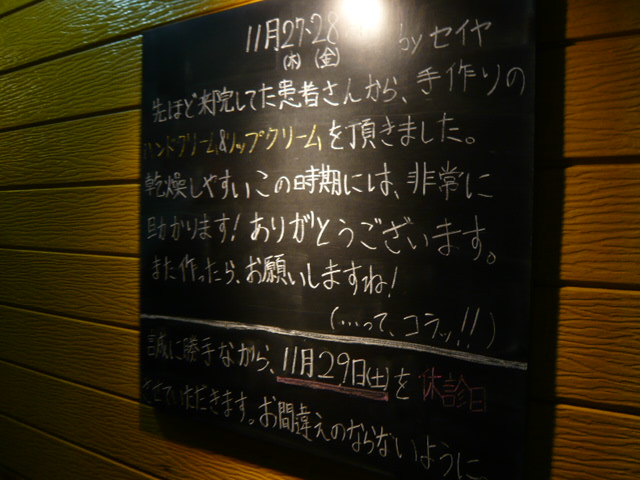 11月27・28 byセイヤ
(木)(金)
先ほど来院してた患者さんから、手作りの
ハンドクリーム&リップクリームを頂きました。
乾燥しやすいこの時期には、非常に
助かります!ありがとうございます。
また作ったら、お願いしますね!
(…って、コラッ!!)
誠に勝手ながら、11月29日(土)を休診日
とさせていただきます。お間違えのならないように、